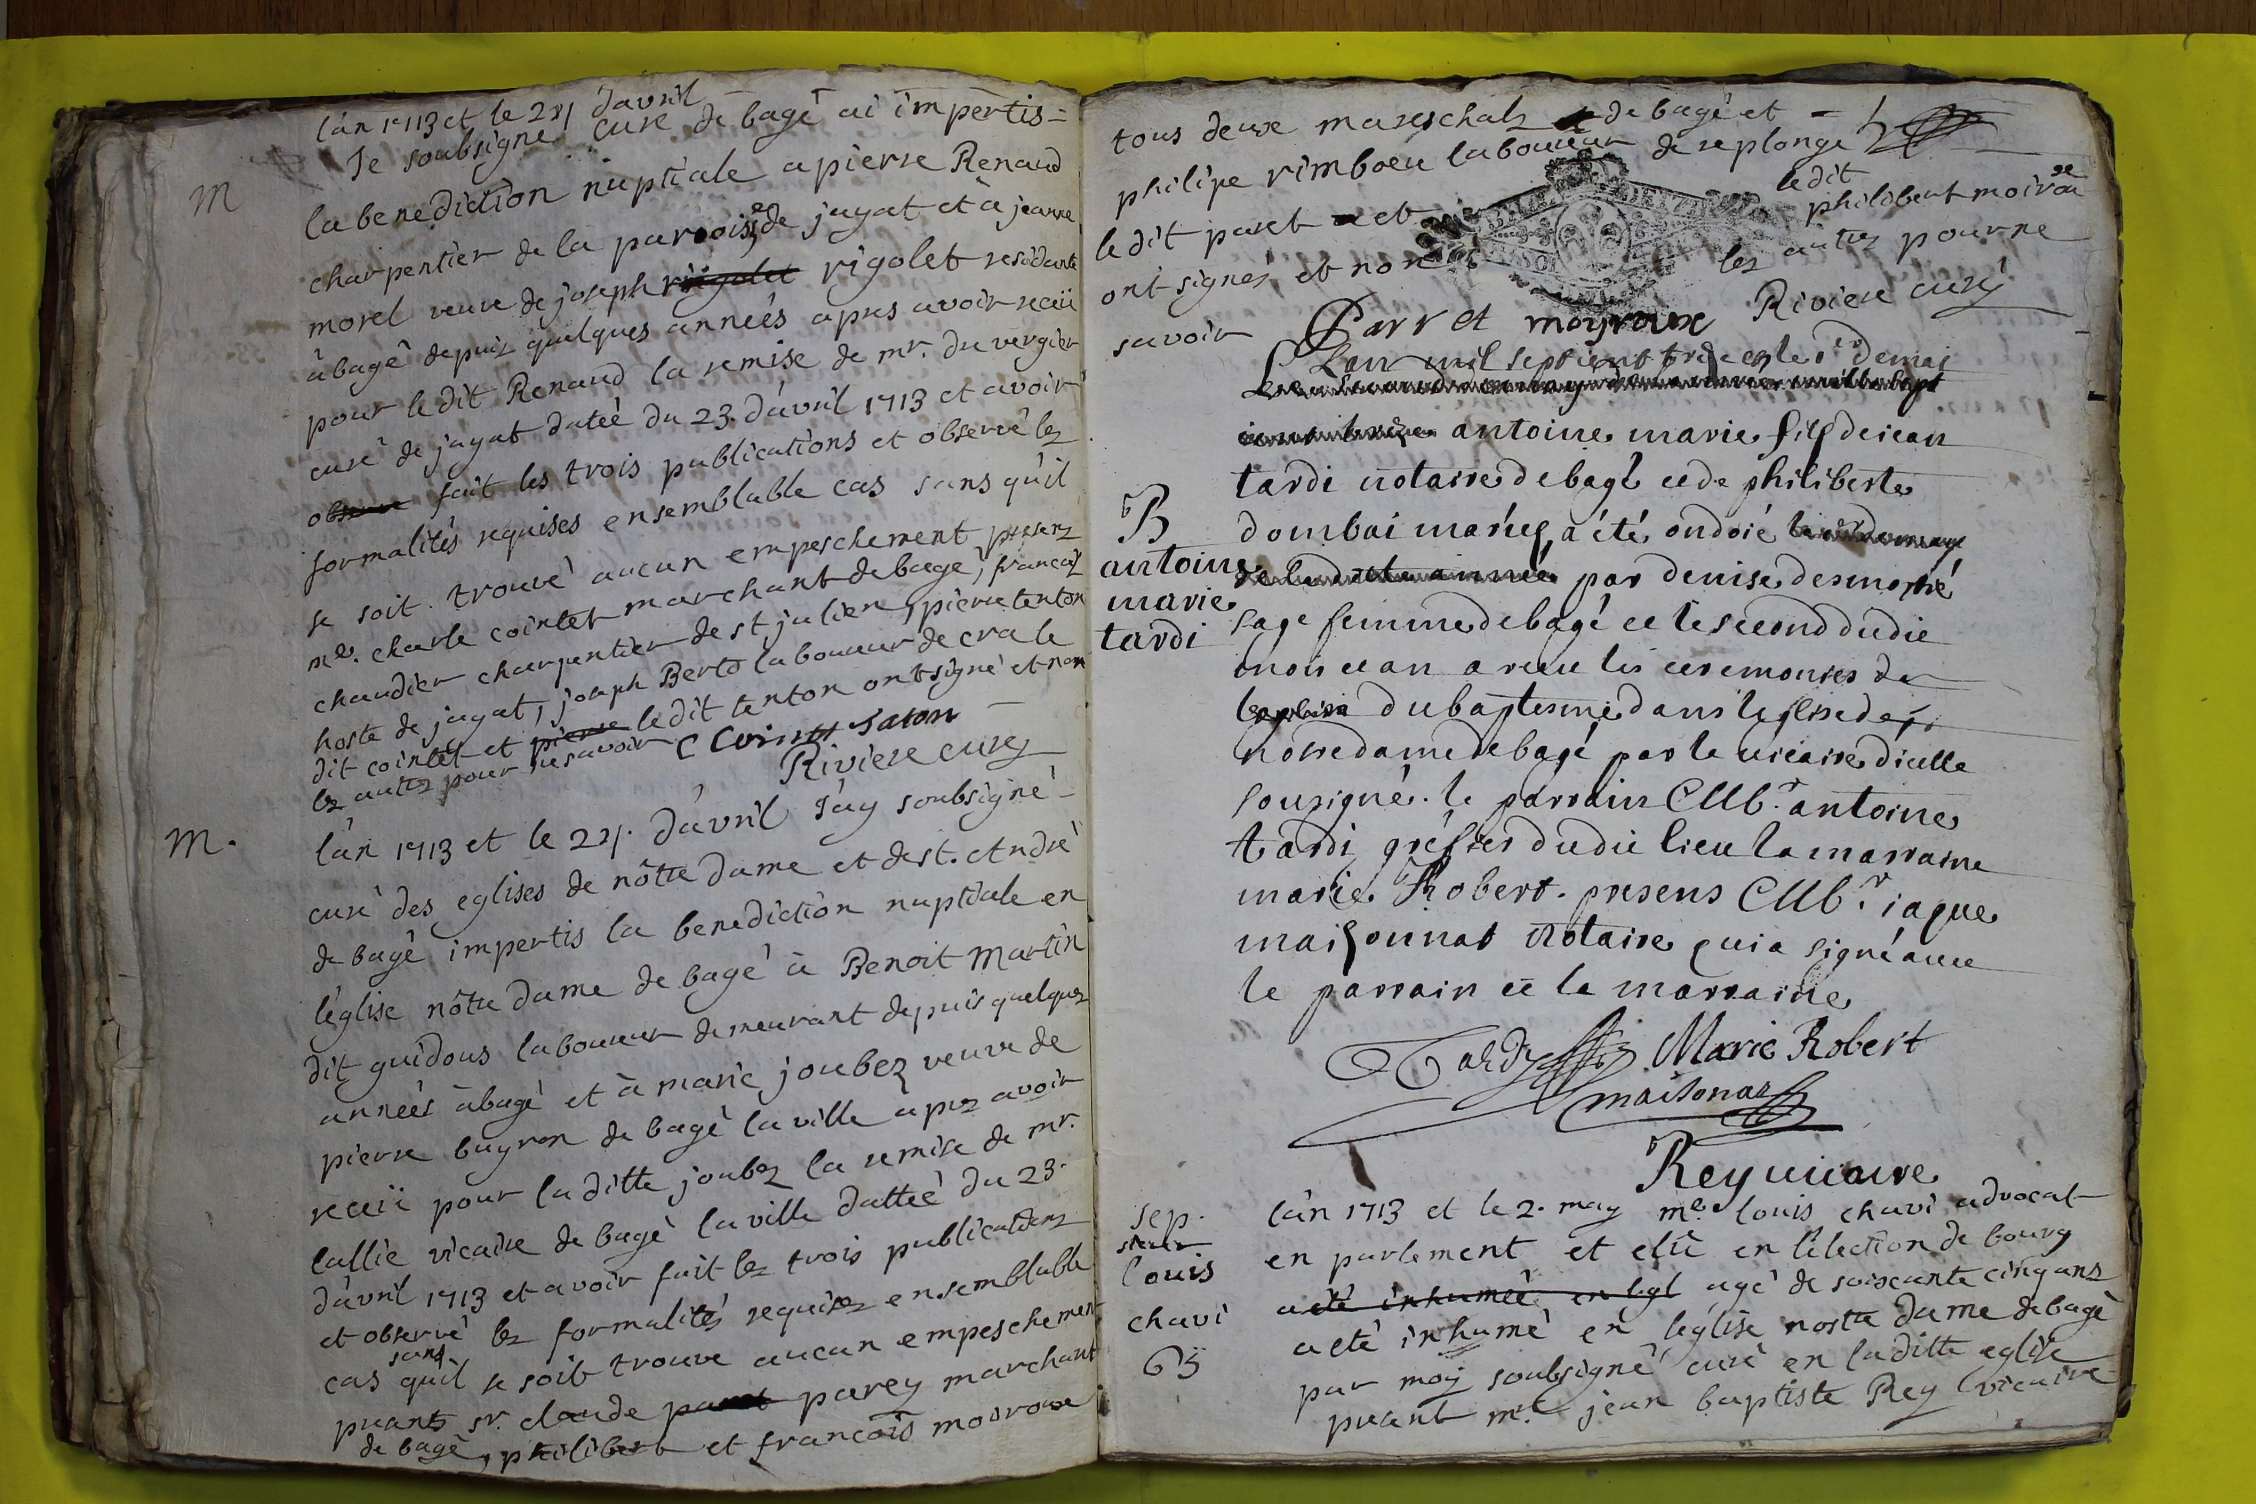 M
l'an 1713 et le 24 d'avril
Je soubsigné curé de bagé ai impertis =
la benediction nuptiale a pierre Renaud
charpentier de la paroisse de jayat et à jeanne
morel veuve de joseph rigolet rigolet residante
à bagé depuis quelques années apres avoir receü
pour le dit Renaud la remise de mr. du vergier
curé de jayat datée du 23 d'avril 1713 et avoir
observé fait les trois publications et observé les
formalités requises en semblable cas sans qu'il
se soit trouvé aucun empeschement presens
me. charle cointet marchant de bagé, françois
chaudier charpentier de st julien, pierre tenton
hoste de jayat, joseph Berto laboureur de cra le
dit cointet et pierre le dit tenton ont signé et non
les autres pour ne savoir C Cointet
Riviere curé
M.
l'an 1713 et le 24. d'avril J'ay soubsigné
curé des eglises de nôtre dame et de st. André
de bagé impertis la benediction nuptiale en
l'église nôtre dame de bagé à Benoit Martin
dit guidous laboureur demeurant depuis quelques
années à bagé et à marie joubez veuve de
pierre buyron de bagé la ville apres avoir
receü pour la ditte joubez la remise de mr.
lallie vicaire de bagé la ville dattée du 23.
d'avril 1713 et avoir fait les trois publications
et observé les formalités requises en semblable
cas sans qu'il se soit trouvé aucun empeschement
presents sr. claude paret parey marchant
de bagé, philibert et françois moiroux
tous deux mareschals de bagé et =
philipe rimboeu laboureur de replonge
le dit paret et le dit philibert moiroux
ont signés et non les autres pour ne
savoir Parret moyroux Riviere curé
L'an mil sept cent treze et le 1er de mai
antoine marie fils de jean
tardi notaire de bagé et de philiberte
B
antoine
marie
tardi
dombai mariés, a été ondoié
de ladicte année par denise
sage femme de bagé et le second dudit
mois et an a receu les ceremonies de
du baptesme dans l'eglise de
notre dame de bagé par le vicaire d'icelle
sousigné. le parrain antoine
tardi gréfier dudit lieu la marraine
marie Robert. presens jaque
maisonnat notaire qui a signé avec
le parrain et la marraine
Tardy Marie Robert
maisonat
Rey vicaire
sep.
sieur
louis
chavi
65
l'an 1713 et le 2. may me. louis chavi advocat
en parlement et elû en l'élection de bourg
a été inhumé en legl agé de soixante cinq ans
a eté inhumé en l'église nostre dame de bagé
par moy soubsigné curé en la ditte eglise
present mre. jean baptiste Rey vicaire